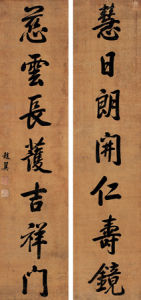 慧日朗開仁壽鏡
慈雲長護吉祥门
趙翼